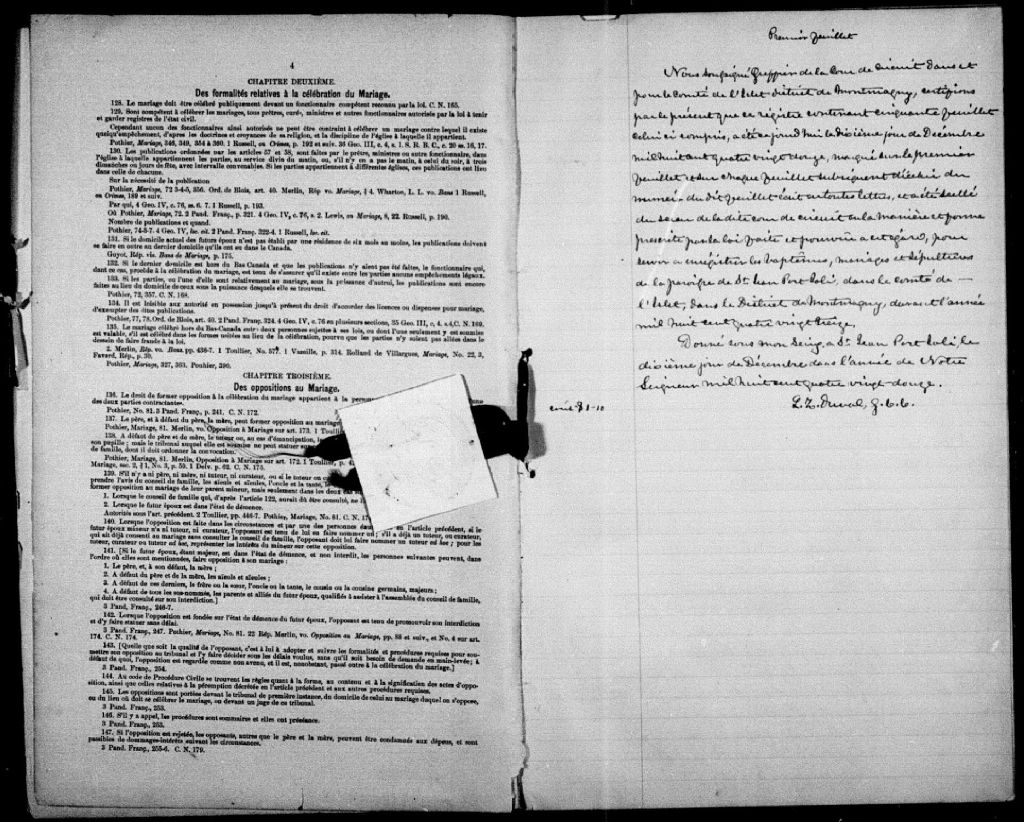 4
CHAPITRE DEUXIÈME.
Des formalités relatives à la célébration du Mariage.
128. Le mariage doit être célébré publiquement devant un fonctionnaire compétent reconnu par la loi. C. N. 165.
129. Sont compétent à célébrer les mariages, tous prêtres, curé-, ministres et autres fonctionnaires autorisés par la loi à tenir
et garder registres de l'état civil.
Cependant aucun des fonctionnaires ainsi autorisé ne peut être contraint à célébrer un mariage contre lequel il existe
quelqu'empêchement, d'après les doctrines et croyances de sa religion, et la discipline de l'église à laquelle il appartient.
Pothier, Mariage, 346, 349, 354 à 360. 1 Russell, on Crimes, p. 192 et suiv. 36 Geo. III, c. 4, s. 1. S. R. B. C., c. 20 ss. 16, 17.
130. Les publications ordonnées par les articles 57 et 58, sont faites par le prêtre, ministre ou autre fonctionnaire, dans
l'église à laquelle appartiennent les parties, au service divin du matin, ou, s'il n'y en a pas le matin, à celui du soir, à trois
dimanches ou jours de fête, avec intervalle convenables. Si les parties appartiennent à différentes églises, ces publications ont lieu
dans celle de chacune.
Sur la nécessité de la publication
Pothier, Mariage, 72 3-4-5, 356. Ord. de Blois, art. 40. Merlin, Rép vo. Mariage, § 4. Wharton, L. L. vo. Bans 1 Russell,
on Crimes, 189 et suiv.
Par qui, 4 Geo. IV, c. 76, ss. 6. 7. 1 Russell, p. 193.
Où Pothier, Mariage, 72. 2 Pand. Franç. p. 321. 4 Geo. IV, c. 76, s. 2. Lewis, on Mariage, 8, 22. Russell, p. 190.
Nombre de publications et quand.
Pothier, 74-5-7. 4 Geo. IV, loc. cit. 2 Pand. Franç. 322-4. 1 Russell, loc. cit.
131. Si le domicile actuel des futurs époux n'est pas établi par une résidence de six mois au moins, les publications doivent
se faire en outre au dernier domicile qu'ils ont eu dans le Canada.
Guyot, Rép. vis. Bans de Mariage, p. 175.
132. Si le dernier domicile est hors du Bas Canada et que les publications n'y aient pas été faites, le fonctionnaire qui,
dans ce cas, procède à la célébration du mariage, est tenu de s'assurer qu'il existe entre les parties aucuns empêchements légaux.
133. Si les parties, ou l'une d'elle sont relativement au mariage, sous la puissance d'autrui, les publications sont encore
faites au lieu du domicile de ceux sous la puissance desquels elle se trouvent.
Pothier, 72, 357. C. N. 168.
134. Il est loisible aux autorité en possession jusqu'à présent du droit d'accorder des licences ou dispenses pour mariage,
d'exempter des dites publications.
Pothier, 77, 78. Ord. de Blois, art. 40. 2 Pand. Franç. 324. 4 Geo. IV, c. 76 en plusieurs sections, 35 Geo. III, c. 4, s.4, C. N. 169.
135. Le mariage célébré hors du Bas-Canada entre deux personnes sujettes à ses lois, ou dont l'une seulement y est soumise
est valable, s'il est célébré dans les formes usitées au lieu de la célébration, pourvu que les parties n'y soient pas allées dans le
dessein de faire fraude à la loi.
2. Merlin, Rép. vo. Bans. pp. 436-7. 1 Toullier, No. 577. 1 Vazeille, p. 314. Rolland de Villargues, Mariage, No. 22, 3,
Favard, Rép., p. 30.
Pothier, Mariage, 327, 363. Pouhier, 390.
CHAPITRE TROISIÈME.
Des oppositions au Mariage.
136. Le droit de former opposition à la célébration du mariage appartient à la
des deux parties contractantes.
Pothier, No. 81. 3 Pand. Franç., p. 241. C. N. 172.
137. Le père, et à défaut du père, la mère, peut former opposition au mariage
Pothier, Mariage, 81. Merlin, vo. Opposition à Mariage sur art. 173. 1 Toulli
138. A défaut de père et de mère, le tuteur ou, au cas d'émancipation, le
son pupille ; mais le tribunal auquel elle est soumise ne peut statuer
de famille, dont il doit ordonner la convocation.
Pothier, Mariage, 81. Merlin, Opposition à Mariage sur art. 172. 1 Toullier, p.
Mariage, sec. 2, § 1. No. 3, p. 59. 1 Delv. p. 62. C. N. 175.
139. S'il n'y a ni père, ni mère, ni tuteur, ni curateur, ou si le tuteur ou
prendre l'avis du conseil de famille, les aïeuls et aïeules, l'oncle et la tante, le
former opposition au mariage de leur parent mineur, mais seulement dans les deux cas
1. Lorsque le conseil de famille qui, d'après l'article 122, aurait dû être consulté, ne
2. Lorsque le futur époux est dans l'état de démence.
Autorités sous l'art. précédent. 2 Toullier, pp. 446-7. Pothier, Mariage, No. 81. C. N.
140. Lorsque l'opposition est faite dans les circonstances et par une des personnes en l'article précédent, si le
futur époux mineur n'a ni tuteur, ni curateur, l'opposant est tenu de lui en faire nommer un ; s'il a déjà un tuteur, ou curateur,
qui ait déjà consenti au mariage sans consulter le conseil de famille, l'opposant doit lui faire nommer un tuteur ad hoc ; pour les
tuteur, curateur ou tuteur ad hoc, représenter les intérêts du mineur sur cette opposition.
141. [Si le futur époux, étant majeur, est dans l'état de démence, et non interdit, les personnes suivantes peuvent, dans
l'ordre où elles sont mentionnées, faire opposition à son mariage :
1. Le père, et, à son défaut, la mère ;
2. A défaut du père et de la mère, les aïeuls et aïeules ;
3. A défaut de ces derniers, le frère ou la sœur, l'oncle ou la tante, le cousin ou la cousine germains, majeurs ;
4. A défaut de tous les sus-nommés, les parents et alliés du futur époux, qualifiés à assister à l'assemblée du conseil de famille,
qui doit être consulté sur son interdiction.]
3 Pand. Franç., 246-7.
142. Lorsque l'opposition est fondée sur l'état de démence du futur époux, l'opposant est tenu de promouvoir son interdiction
et d'y faire statuer sans délai.
3 Pand. Franç., 247. Pothier, Mariage, No. 81. 22 Rép. Merlin, vo. Opposition au Mariage, pp. 88 et suiv., et No. 4 sur art.
174. C. N. 174.
143. [Quelle que soit la qualité de l'opposant, c'est à lui à adopter et suivre les formalités et procédures requises pour sou-
mettre son opposition au tribunal et l'y faire décider sous les délais voulus, sans qu'il soit besoin de demande en main-levée ; à
défaut de quoi, l'opposition est regardée comme non avenue, et il est, nonobstant, passé outre à la célébration du mariage.]
3 Pand. Franç., 254.
144. Au code de Procédure Civile se trouvent les règles quant à la forme, au contenu et à la signification des actes d'oppo-
sition, ainsi que celles relatives à la péremption décrétée en l'article précédent et aux autres procédures requises.
145. Les oppositions sont portées devant le tribunal de première instance, du domicile de celui au mariage duquel on s'oppose,
ou du lieu où doit se célébrer le mariage, ou devant un juge de ce tribunal.
3 Pand. Franç., 253.
146. S'il y a appel, les procédures sont sommaires et elles ont préséance.
3 Pand. Franç., 253.
147. Si l'opposition est rejetée, les opposants, autres que le père et la mère, peuvent être condamnés aux dépens, et sont
passibles de dommages-intérêts suivant les circonstances.
3 Pand. Franç., 255-6. C. N. 179.
Premier feuillet
Nous soussigné Greffier de la Cour de circuit dans et
pour le comté de l'Islet district de Montmagny, certifions
par le présent que ce régistre contenant cinquante feuillet
celui ci compris, a été ce jour d'hui le dixième jour de Décembre
mil huit cent quatre vingt douze, marqué sur le premier
feuillet et sur chaque feuillet subséquent d'icelui du
numero du dit feuillet écrit en toutes lettres, et a été scellé
du sceau de la dite cour de circuit en la manière et forme
prescrite par la loi faite et pourvue a cet égard, pour
servir a enrégistrer les baptêmes, mariages et sépultures
de la paroisse de St. Jean Port Joli, dans le comté de
l'Islet, dans le District de Montmagny, durant l'année
mil huit cent quatre vingt treize,
Donné sous mon Seing, a St. Jean Port Joli le
dixième jour de Décembre dans l'année de Notre
Seigneur mil huit cent quatre vingt-douze.
L. Z. Duval, G. C. C.
$ 1-10